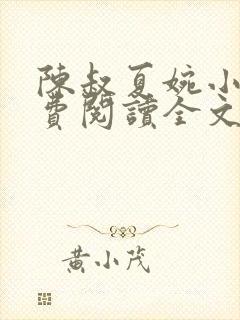 陳叔夏婉小
費閱讀全文
黃小茂